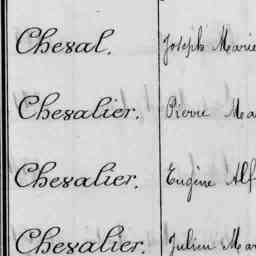 Cheval. Joseph Marie
Chevalier. Pierre Ma
Chevalier. Eugène Alf
Chevalier. Julien Mar